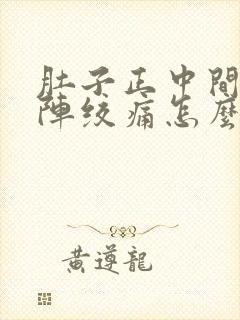 肚子正中間
陣绞痛怎麼
黃遵龍